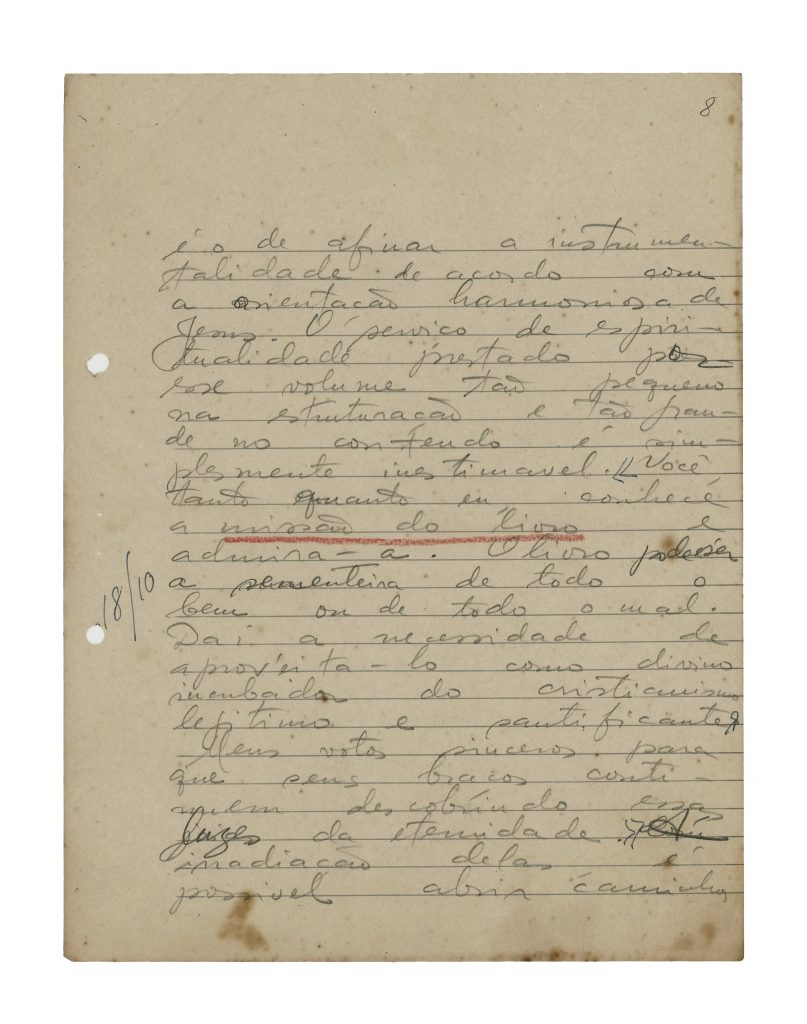 8
é o de afinar a instrumen-
talidade de acordo com
a orientação harmoniosa de
Jesus. O serviço de espiri-
tualidade prestado por
esse volume tão pequeno
na estruturação e tão gran-
de no conteúdo é sim-
plesmente inestimavel. Você
tanto quanto eu conhece
a missão do livro e
admira-a. O livro poderá ser
a sementeira de todo o
bem ou de todo o mal.
18/10
Dai a necessidade de
aproveita-lo como divino
incubador do cristianismo
legitimo e santificante
Meus votos sinceros para
que seus braços conti-
nuem descobrindo essas
luzes da eternidade.
irradiação delas é
possivel abrir caminhos